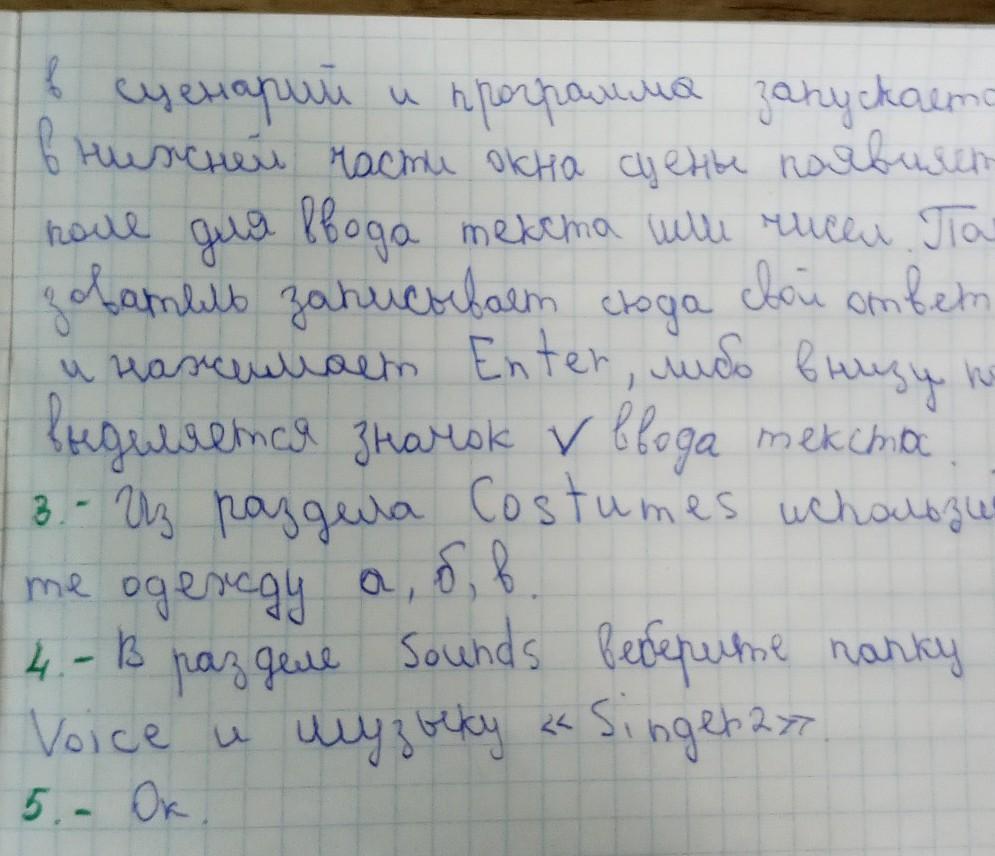 в сценарий и программа запускаетс
в нижней части окна сцены появляет
поле для ввода текста или чисел. Пол
зователь записывает сюда свой ответ
и нажимает Enter, либо внизу по
выделяется значок ✓ ввода текста.
3.- Из раздела Costumes использий
те одежду а, б, в.
4.- В разделе Sounds веберите папку
Voice и музыку «Singer2».
5.- Ок.